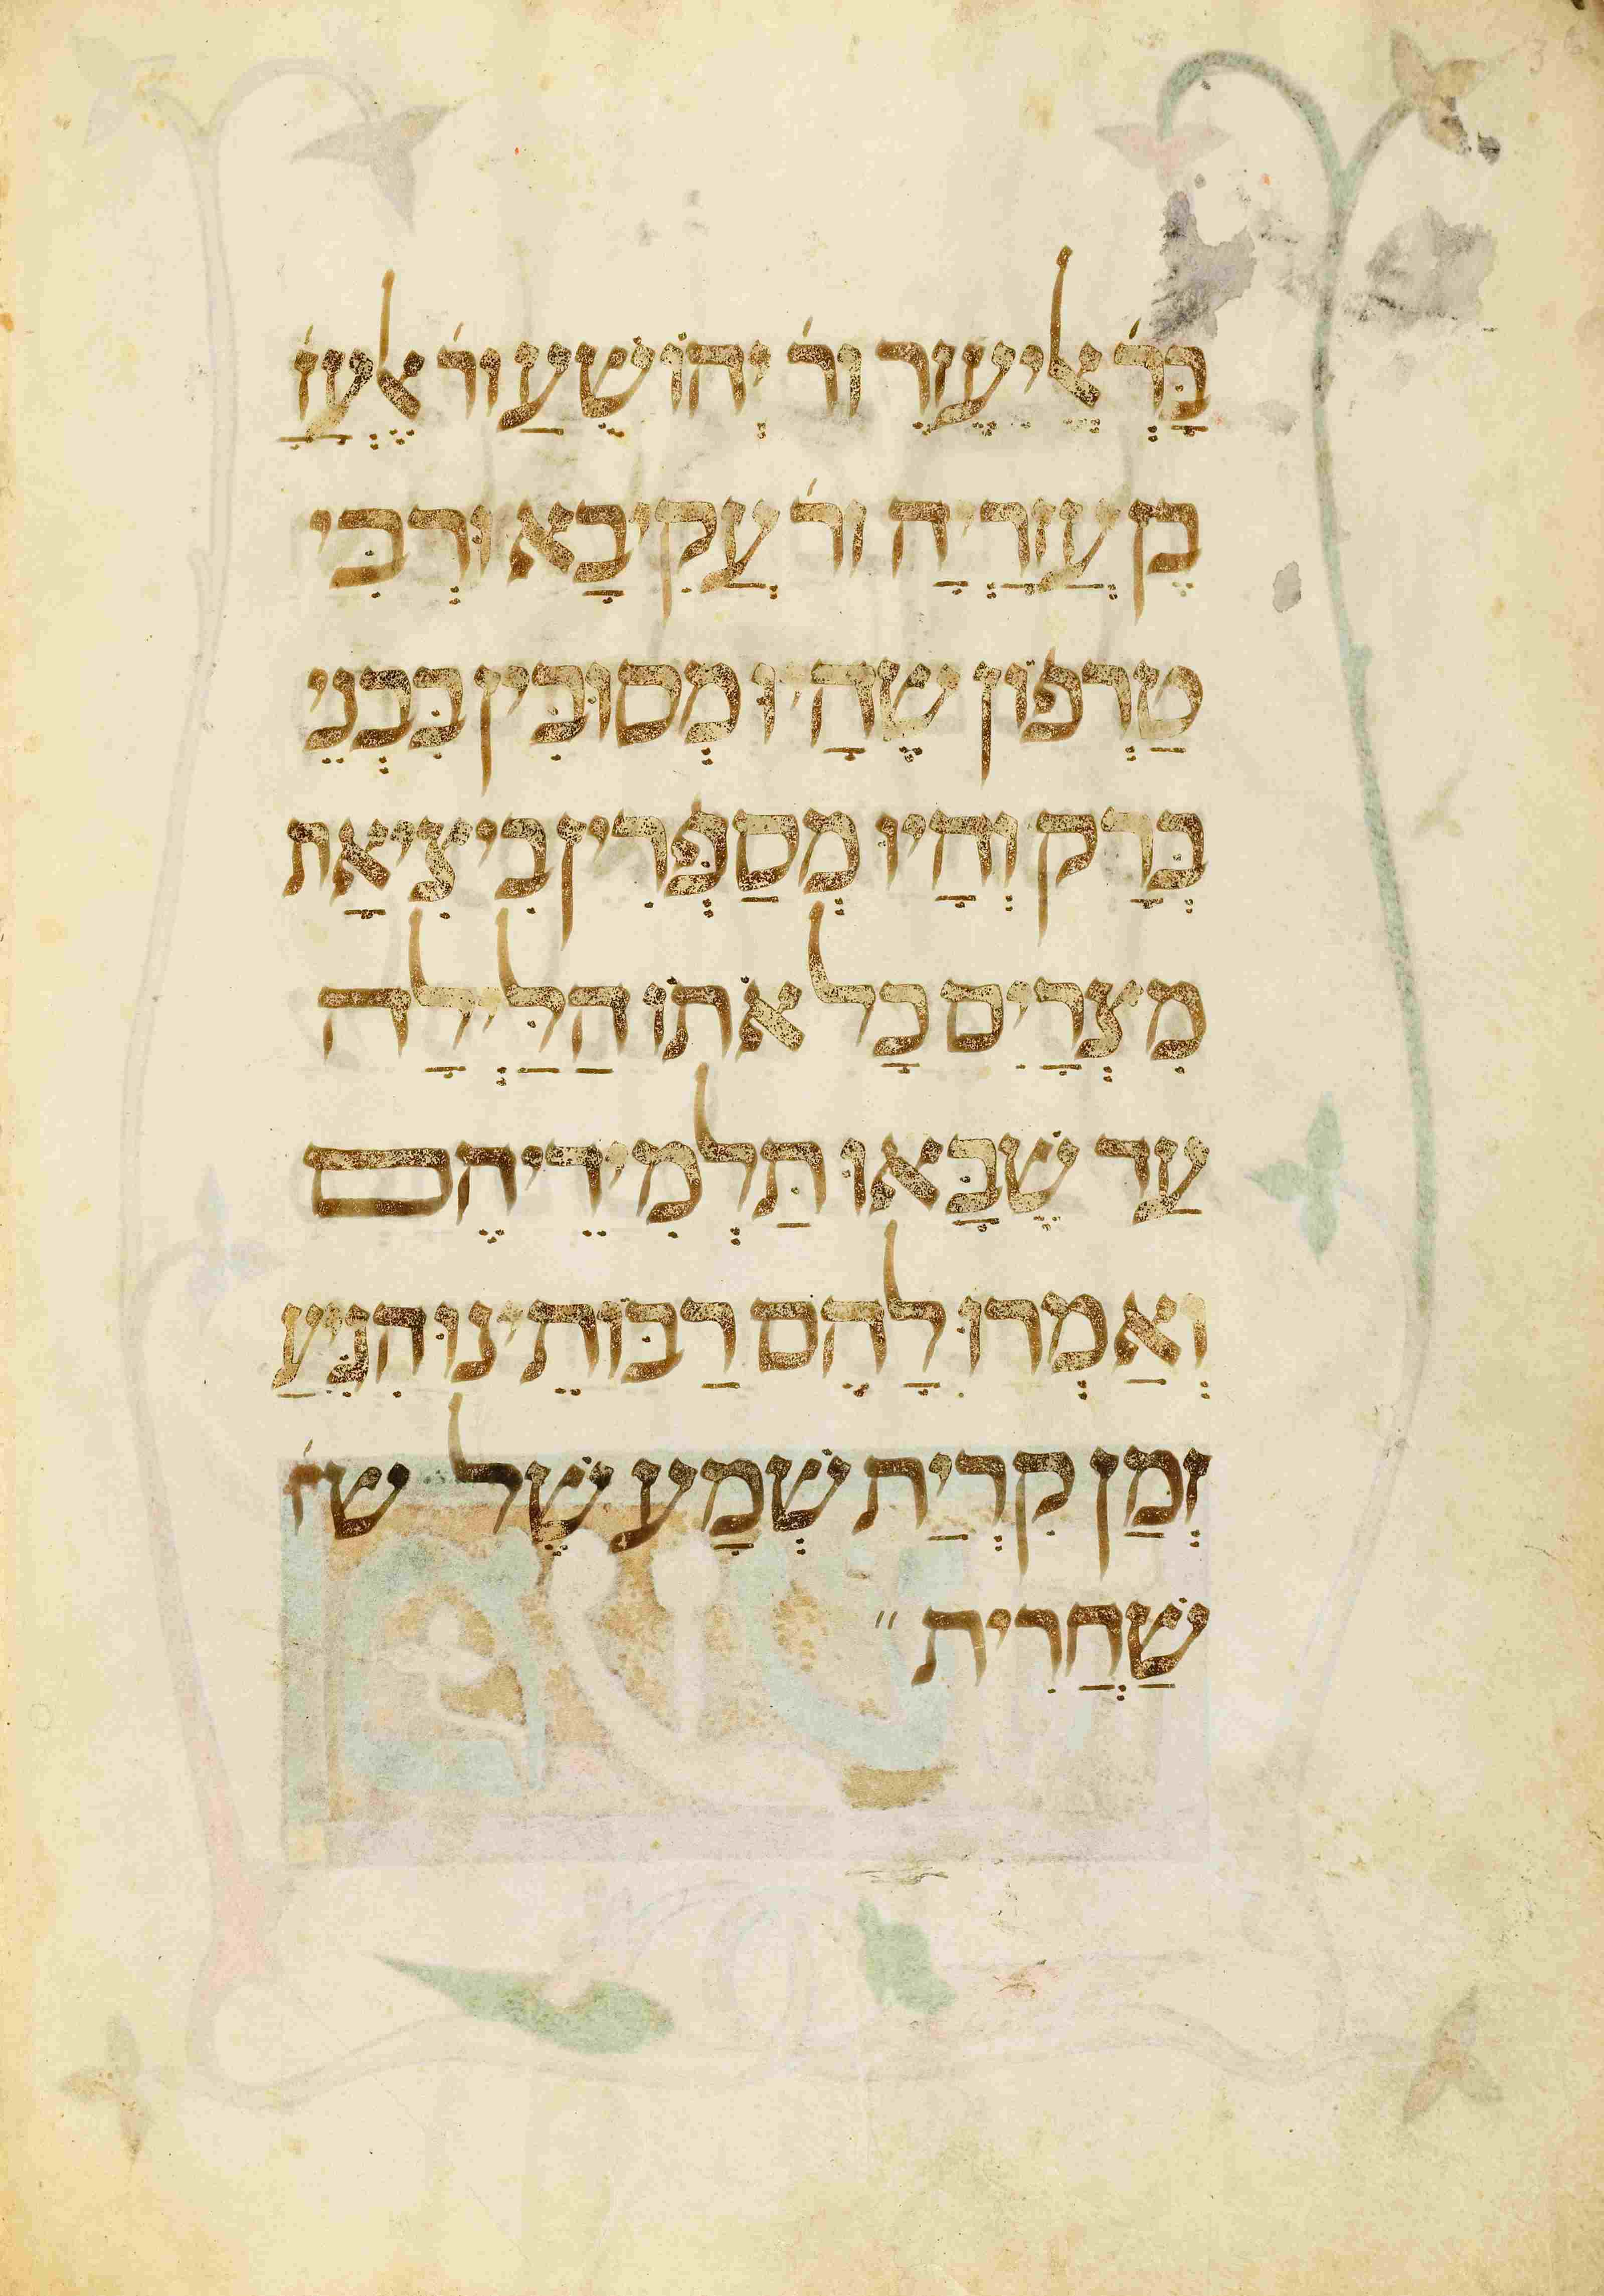 בְּר' אֱלִיעֶזֶר ור' יְהוֹשֻׁעַ ור' אֶלְעָז'
בֶּן עֲזַרְיָה ור' עֲקִיבָא וְרַבִּי
טַרְפוֹן שֶׁהָיוּ מְסוּבִּין בִּבְנֵי
בְּרָק וְהָיוּ מְסַפְּרִין בִּיצִיאַת
מִצְרָיִם כָּל אֹתוֹ הַלַּיְלָה
עַד שֶׁבָּאוּ תַּלְמִידֵיהֶם
וְאַמְרוּ לָהֶם רַבּוֹתֵינוּ הִגִּיעַ
זְמַן קִרְיַת שְׁמָע שֶׁל ש'
שַׁחֲרִית ״